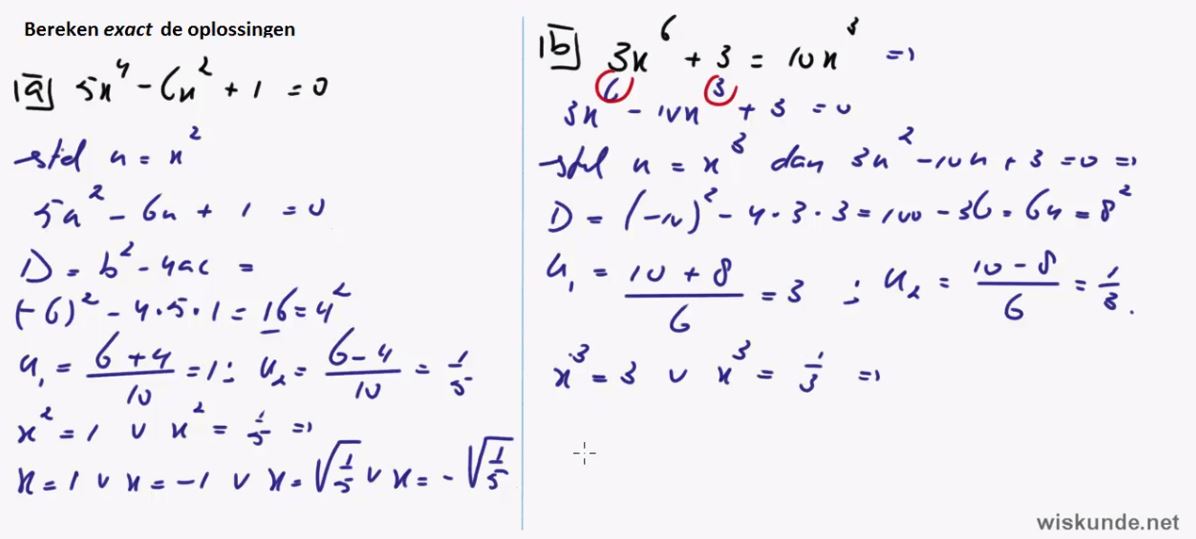 Bereken exact de oplossingen
a) 5x⁴ - 6x² + 1 = 0
stel u = x²
5u² - 6u + 1 = 0
D = b² - 4ac =
(-6)² - 4·5·1 = 16 = 4²
u₁ = (6+4)/10 = 1 ; u₂ = (6-4)/10 = 1/5
x² = 1 ∨ x² = 1/5 ⇒
x = 1 ∨ x = -1 ∨ x = √(1/5) ∨ x = -√(1/5)
b) 3x⁶ + 3 = 10x³ ⇒
3x⁶ - 10x³ + 3 = 0
stel u = x³ dan 3u² - 10u + 3 = 0 ⇒
D = (-10)² - 4·3·3 = 100 - 36 = 64 = 8²
u₁ = (10+8)/6 = 3 ; u₂ = (10-8)/6 = 1/3.
x³ = 3 ∨ x³ = 1/3 ⇒
wiskunde.net